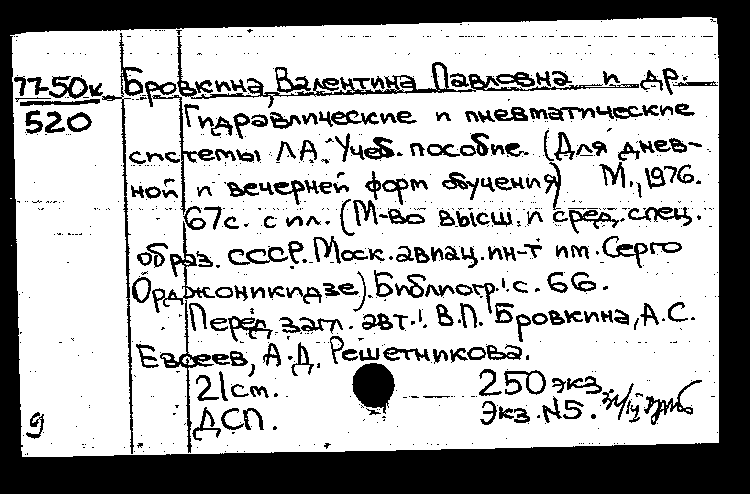 77-50к Бровкина, Валентина Павловна и др.
520 Гидравлические и пневматические
системы ЛА. Учеб. пособие. (Для днев-
ной и вечерней форм обучения) М., 1976.
67с. с ил. (М-во высш. и сред. спец.
образ. СССР. Моск. авиац. ин-т им. Серго
Орджоникидзе). Библиогр.: с. 66.
Перед загл. авт.: В.П. Бровкина, А.С.
Евсеев, А.Д. Решетникова.
21 см. 250 экз.
9 ДСП. Экз. №5.